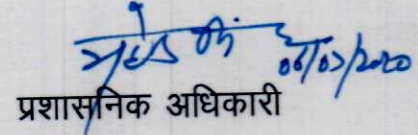 06/07/2020
प्रशासनिक अधिकारी